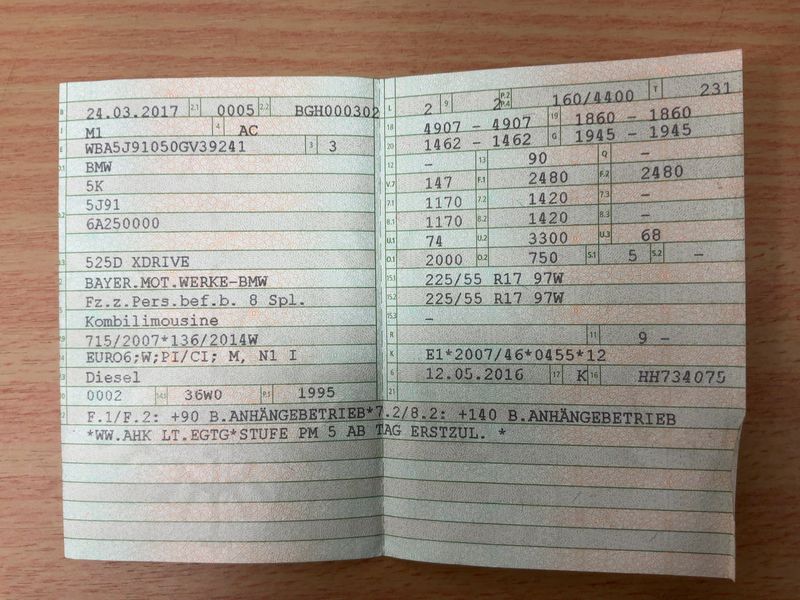 B 24.03.2017 2.1 0005 2.2 BGH000302
J M1 4 AC
E WBA5J91050GV39241 3 3
D.1 BMW
5K
5J91
D.2 6A250000
D.3 525D XDRIVE
2 BAYER.MOT.WERKE-BMW
Fz.z.Pers.bef.b. 8 Spl.
Kombilimousine
715/2007*136/2014W
EURO6;W;PI/CI; M, N1 I
Diesel
0002 14.1 36W0 P.1 1995
F.1/F.2: +90 B.ANHÄNGEBETRIEB*7.2/8.2: +140 B.ANHÄNGEBETRIEB
*WW.AHK LT.EGTG*STUFE PM 5 AB TAG ERSTZUL. *
L 2 9 2 P.2 P.4 160/4400 T 231
18 4907 - 4907 19 1860 - 1860
20 1462 - 1462 G 1945 - 1945
12 - 13 90 Q -
V.7 147 F.1 2480 F.2 2480
7.1 1170 7.2 1420 7.3 -
8.1 1170 8.2 1420 8.3 -
U.1 74 U.2 3300 U.3 68
O.1 2000 O.2 750 S.1 5 S.2 -
15.1 225/55 R17 97W
15.2 225/55 R17 97W
15.3 -
R 11 9 -
K E1*2007/46*0455*12
6 12.05.2016 17 K 16 HH734075
21